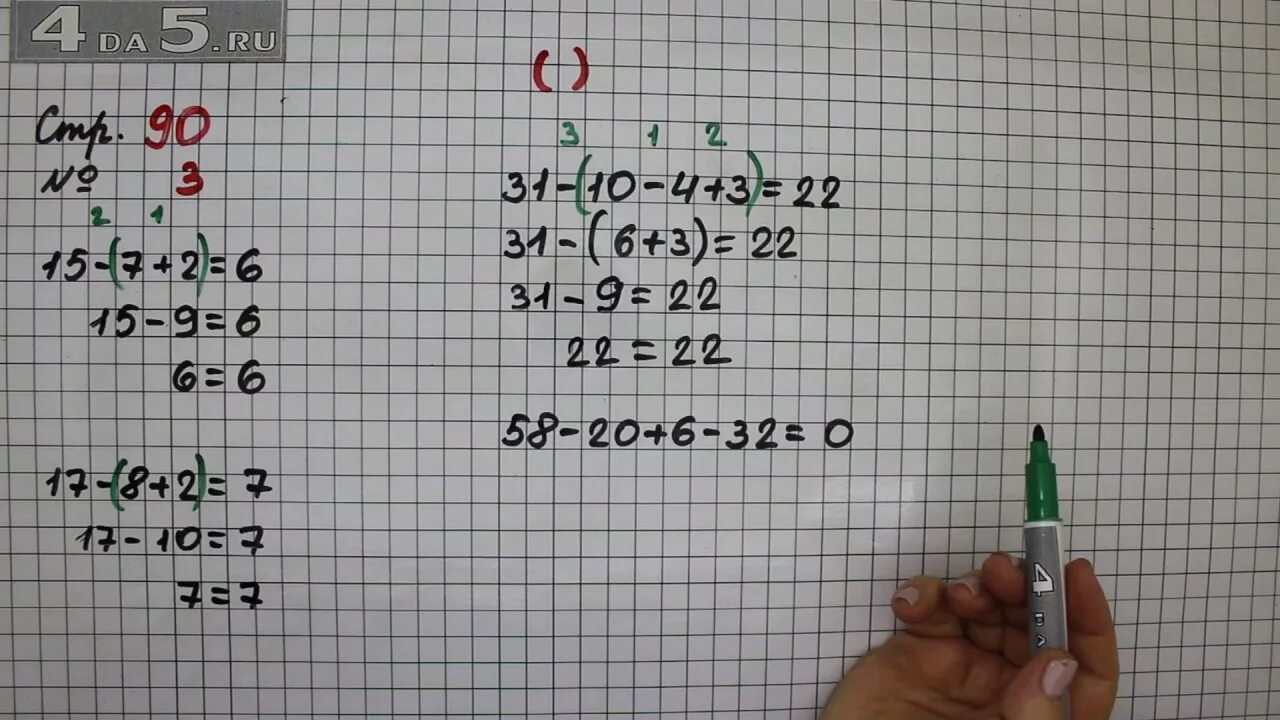 4DA5.RU
Стр. 90
№ 3
2 1
15-(7+2)=6
15-9=6
6=6
17-(8+2)=7
17-10=7
7=7
( )
3 1 2
31-(10-4+3)=22
31-(6+3)=22
31-9=22
22=22
58-20+6-32=0
4DA